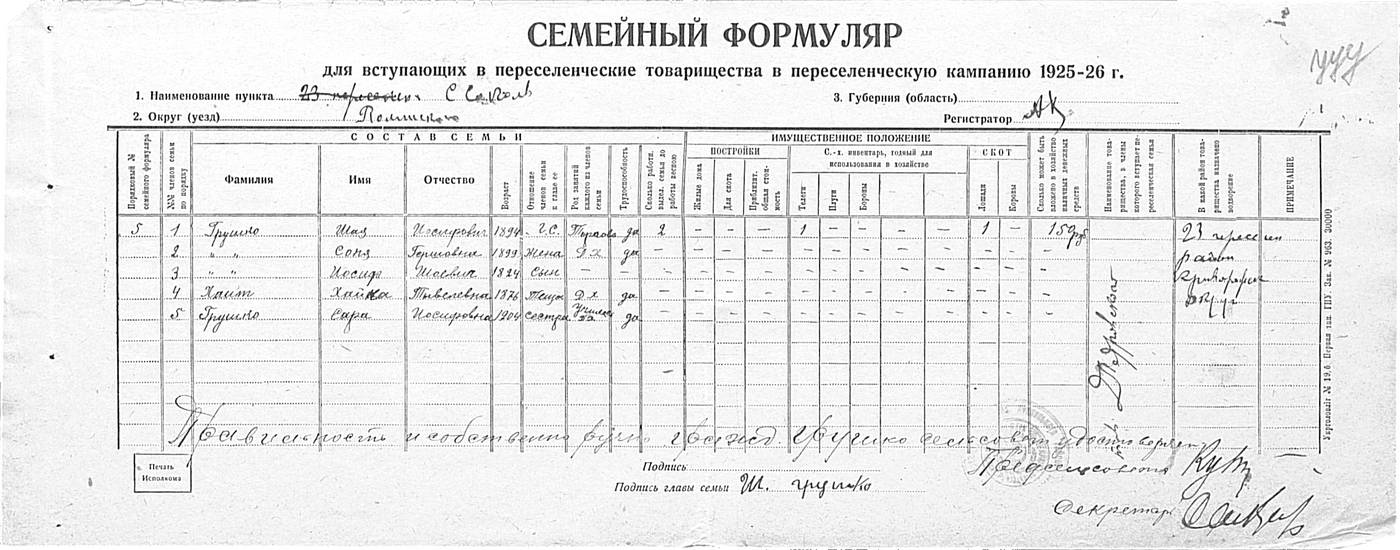 СЕМЕЙНЫЙ ФОРМУЛЯР
для вступающих в переселенческие товарищества в переселенческую кампанию 1925-26 г.
1. Наименование пункта
3. Губерния (область)
2. Округ (уезд)
Регистратор
СОСТАВ СЕМЬИ
ИМУЩЕСТВЕННОЕ ПОЛОЖЕНИЕ
ПОСТРОЙКИ
С.-х. инвентарь, годный для использования в хозяйстве
СКОТ
Порядковый № семейного формуляра
№№ членов семьи по порядку
Фамилия
Имя
Отчество
Возраст
Отношение членов семьи к главе ее
Род занятий каждого из членов семьи
Трудоспособность
Сколько работн. выдел. семья до работы весною
Жилые дома
Для скота
Приблизит. общая стоимость
Телеги
Плуги
Бороны
Лошади
Коровы
Сколько может быть вложено в хозяйство наличных денежных средств
Наименование товарищества, в члены которого вступает переселенческая семья
В какой район товарищества назначено водворение
ПРИМЕЧАНИЕ
5 1 Грушко Шая Иосифович 1894 Г.С. да 2 – – – 1 – – – – 1 – 150 руб 23 пересел
2 " " Соня Гершовна 1899 жена Д х да – район
3 " " Иосиф Шаевич 1924 сын – –
4 Хаит Хайка 1876 теща Д х да – округ
5 Грушко Сара Иосифовна 1904 сестра да –
Правильность и собственно ручно гражд. Грушко сельсовет удостоверяет
Печать Исполкома
Подпись
Подпись главы семьи Ш. Грушко
Секретарь
Укрглавлит № 19,б. Первая зап. ГПУ. Зак. № 963. 30000